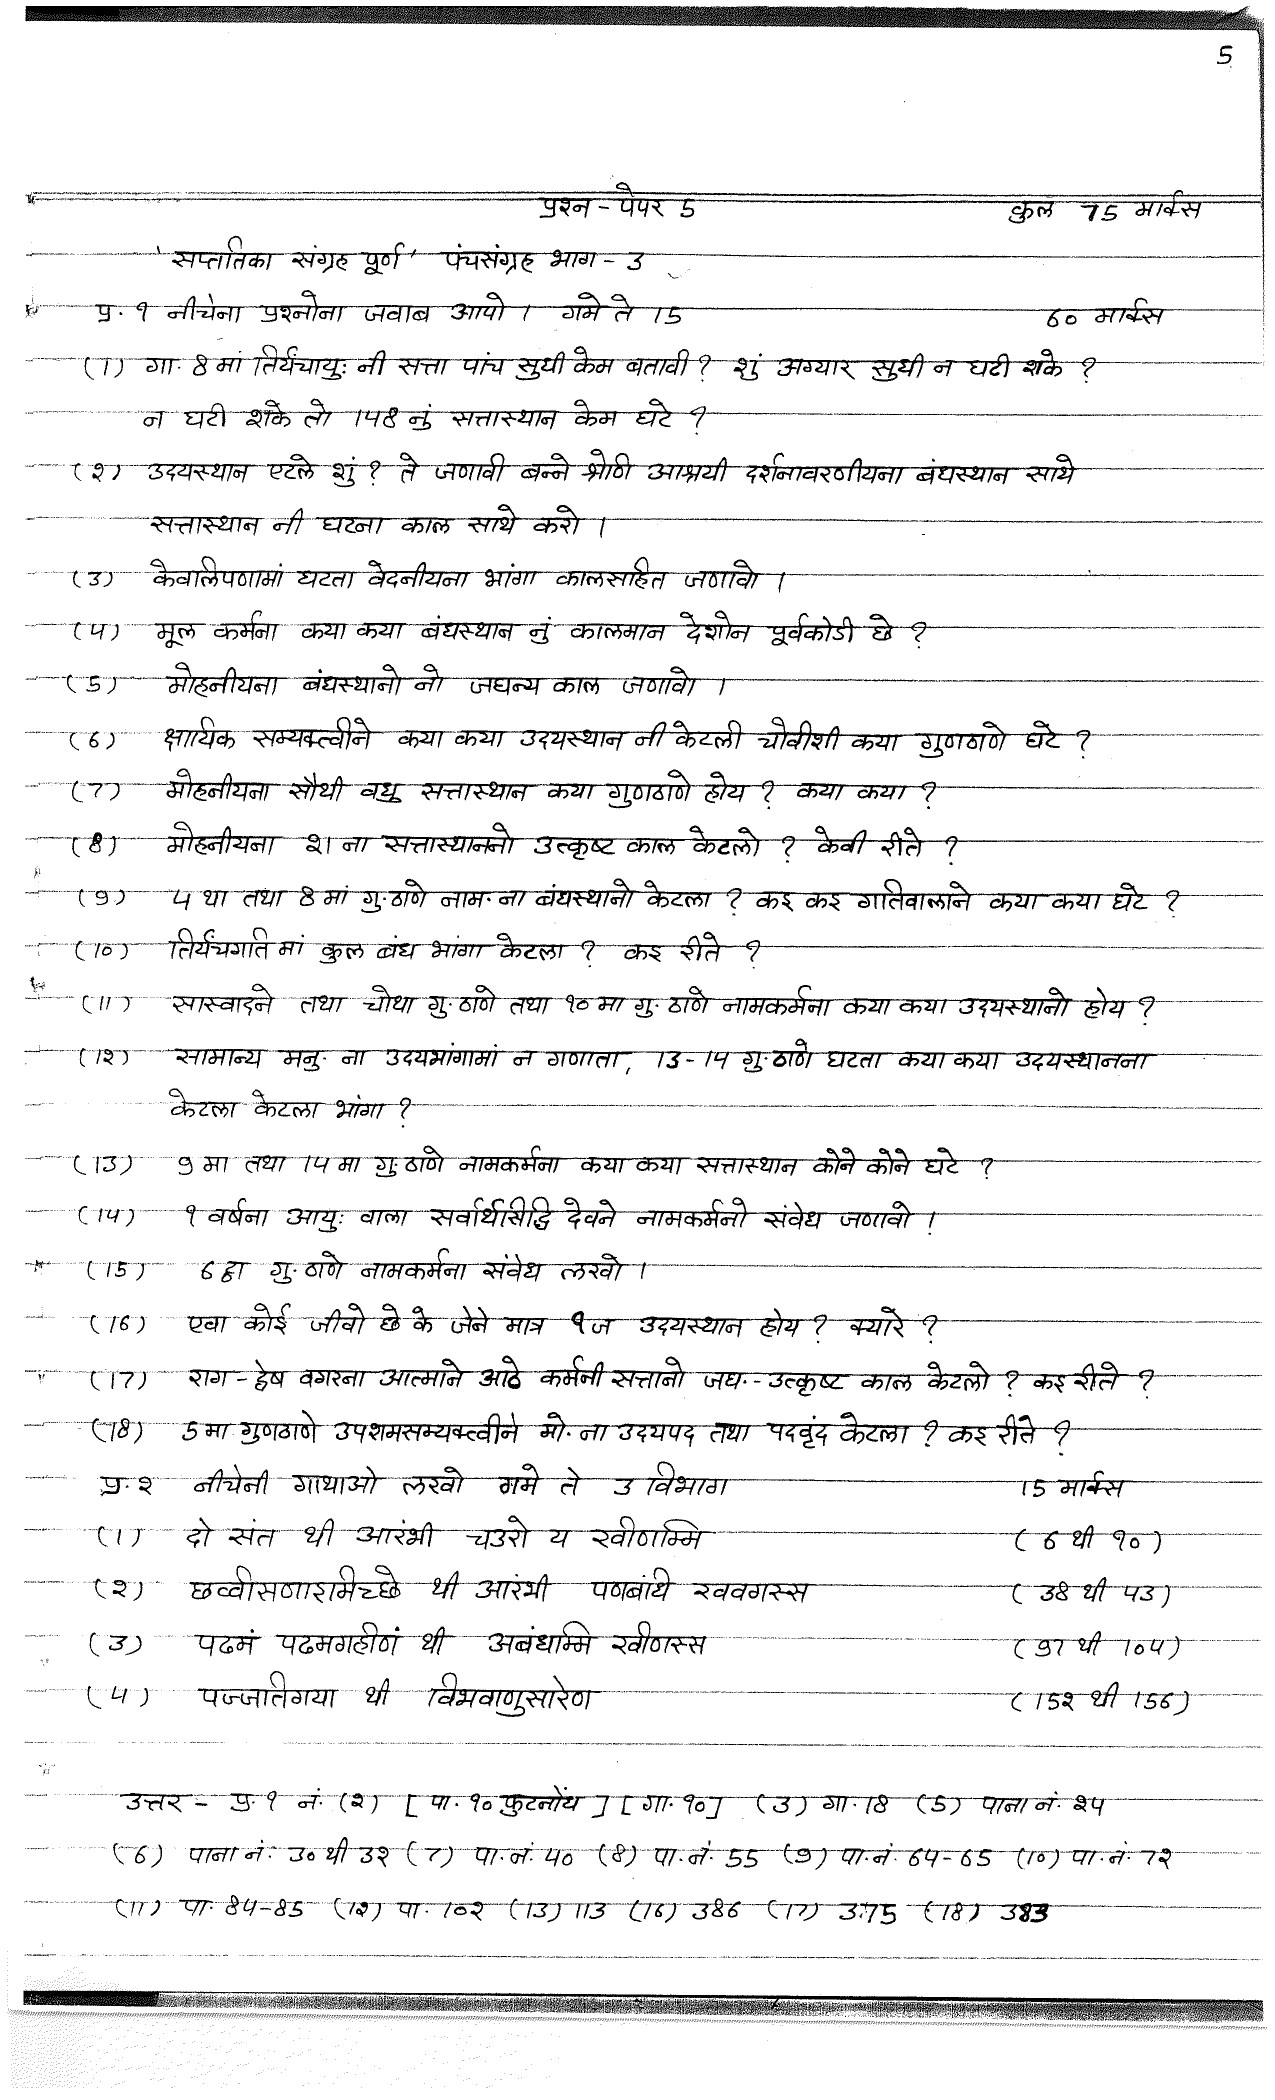 5
प्रश्न - पेपर 5 कुल 75 मार्कस
'सप्ततिका संग्रह पूर्ण' पंचसंग्रह भाग - 3
प्र. १ नीचेना प्रश्नोना जवाब आपो । गमे ते 15 60 मार्कस
(1) गा. 8 मां तिर्यंचायुः नी सत्ता पांच सुधी केम बतावी ? शुं अग्यार सुधी न घटी शके ?
न घटी शके तो 148 नुं सत्तास्थान केम घटे ?
(२) उदयस्थान एटले शुं ? ते जणावी बन्ने श्रेणि आश्रयी दर्शनावरणीयना बंधस्थान साथे
सत्तास्थान नी घटना काल साथे करो ।
(3) केवलिपणामां घटता वेदनीयना भांगा कालसहित जणावो ।
(4) मूल कर्मना कया कया बंधस्थान नुं कालमान देशोन पूर्वकोडी छे ?
(5) मोहनीयना बंधस्थानो नो जघन्य काल जणावो ।
(6) क्षायिक सम्यक्त्वीने कया कया उदयस्थान नी केटली चोवीशी कया गुणठाणे घटे ?
(7) मोहनीयना सौथी वधु सत्तास्थान कया गुणठाणे होय ? कया कया ?
(8) मोहनीयना २१ ना सत्तास्थाननो उत्कृष्ट काल केटलो ? केवी रीते ?
(9) 4 था तथा 8 मां गु. ठाणे नाम. ना बंधस्थानो केटला ? कइ कइ गतिवालाने कया कया घटे ?
(10) तिर्यंचगति मां कुल बंध भांगा केटला ? कइ रीते ?
(11) सास्वादने तथा चोथा गु. ठाणे तथा १० मा गु. ठाणे नामकर्मना कया कया उदयस्थानो होय ?
(1२) सामान्य मनु. ना उदयभांगामां न गणाता, 13-14 गु. ठाणे घटता कया कया उदयस्थानना
केटला केटला भांगा ?
(13) 9 मा तथा 14 मा गु. ठाणे नामकर्मना कया कया सत्तास्थान कोने कोने घटे ?
(14) १ वर्षना आयुः वाला सर्वार्थसिद्धि देवने नामकर्मनो संवेध जणावो ।
(15) 6 ट्ठा गु. ठाणे नामकर्मना संवेध लखो ।
(16) एवा कोई जीवो छे के जेने मात्र १ ज उदयस्थान होय ? क्यारे ?
(17) राग - द्वेष वगरना आत्माने आठे कर्मनी सत्तानो जघ. - उत्कृष्ट काल केटलो ? कइ रीते ?
(18) 5 मा गुणठाणे उपशमसम्यक्त्वीने मो. ना उदयपद तथा पदवृंद केटला ? कइ रीते ?
प्र. २ नीचेनी गाथाओ लखो गमे ते 3 विभाग 15 मार्कस
(1) दो संत थी आरंभी चउरो य खीणम्मि (6 थी १०)
(२) छव्वीसणाइमिच्छे थी आरंभी पणबंधि खवगस्स (38 थी 43)
(3) पढमं पढमगहीणं थी अबंधम्मि खीणस्स (97 थी 104)
(4) पज्जत्तिगया थी विभवाणुसारेण (15२ थी 156)
उत्तर - प्र. १ नं. (२) [पा. १० फुटनोंध] [गा. १०] (3) गा. 18 (5) पाना नं. २4
(6) पाना नं. 3० थी 3२ (7) पा. नं. 40 (8) पा. नं. 55 (9) पा. नं. 64-65 (10) पा. नं. 7२
(11) पा. 84-85 (1२) पा. 10२ (13) 113 (16) 386 (17) 375 (18) 383